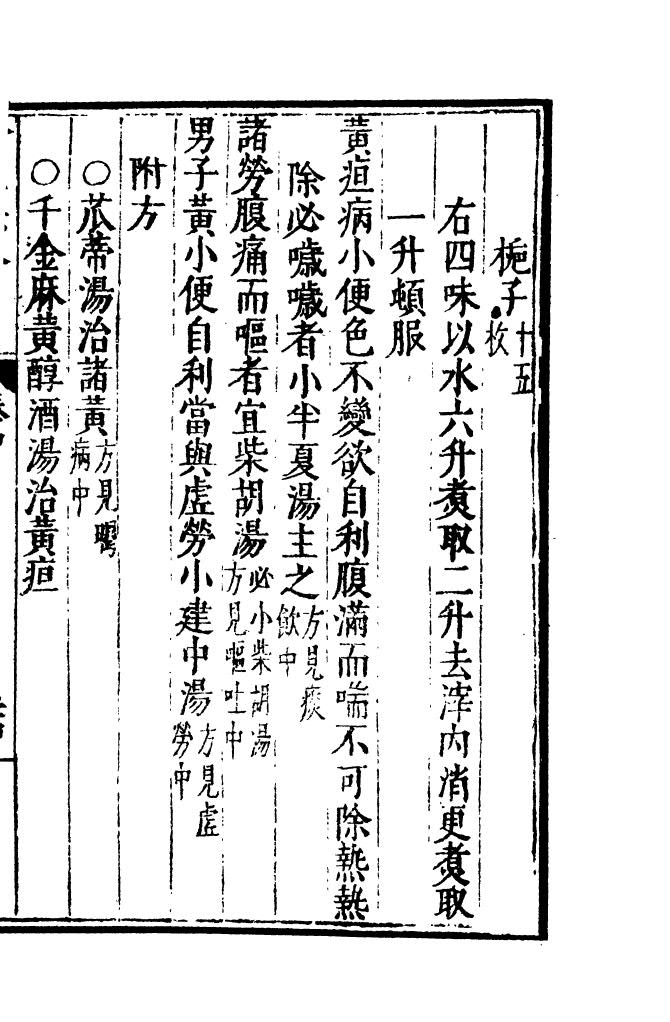 梔子十五枚
右四味以水六升煑取二升去滓內消更煑取
一升頓服
黃疸病小便色不變欲自利腹滿而喘不可除熱熱
除必噦噦者小半夏湯主之方見痰飲中
諸勞腹痛而嘔者宜柴胡湯必小柴胡湯方見嘔吐中
男子黃小便自利當與虛勞小建中湯方見虛勞中
附方
○瓜蒂湯治諸黃方見暍病中
○千金麻黃醇酒湯治黃疸